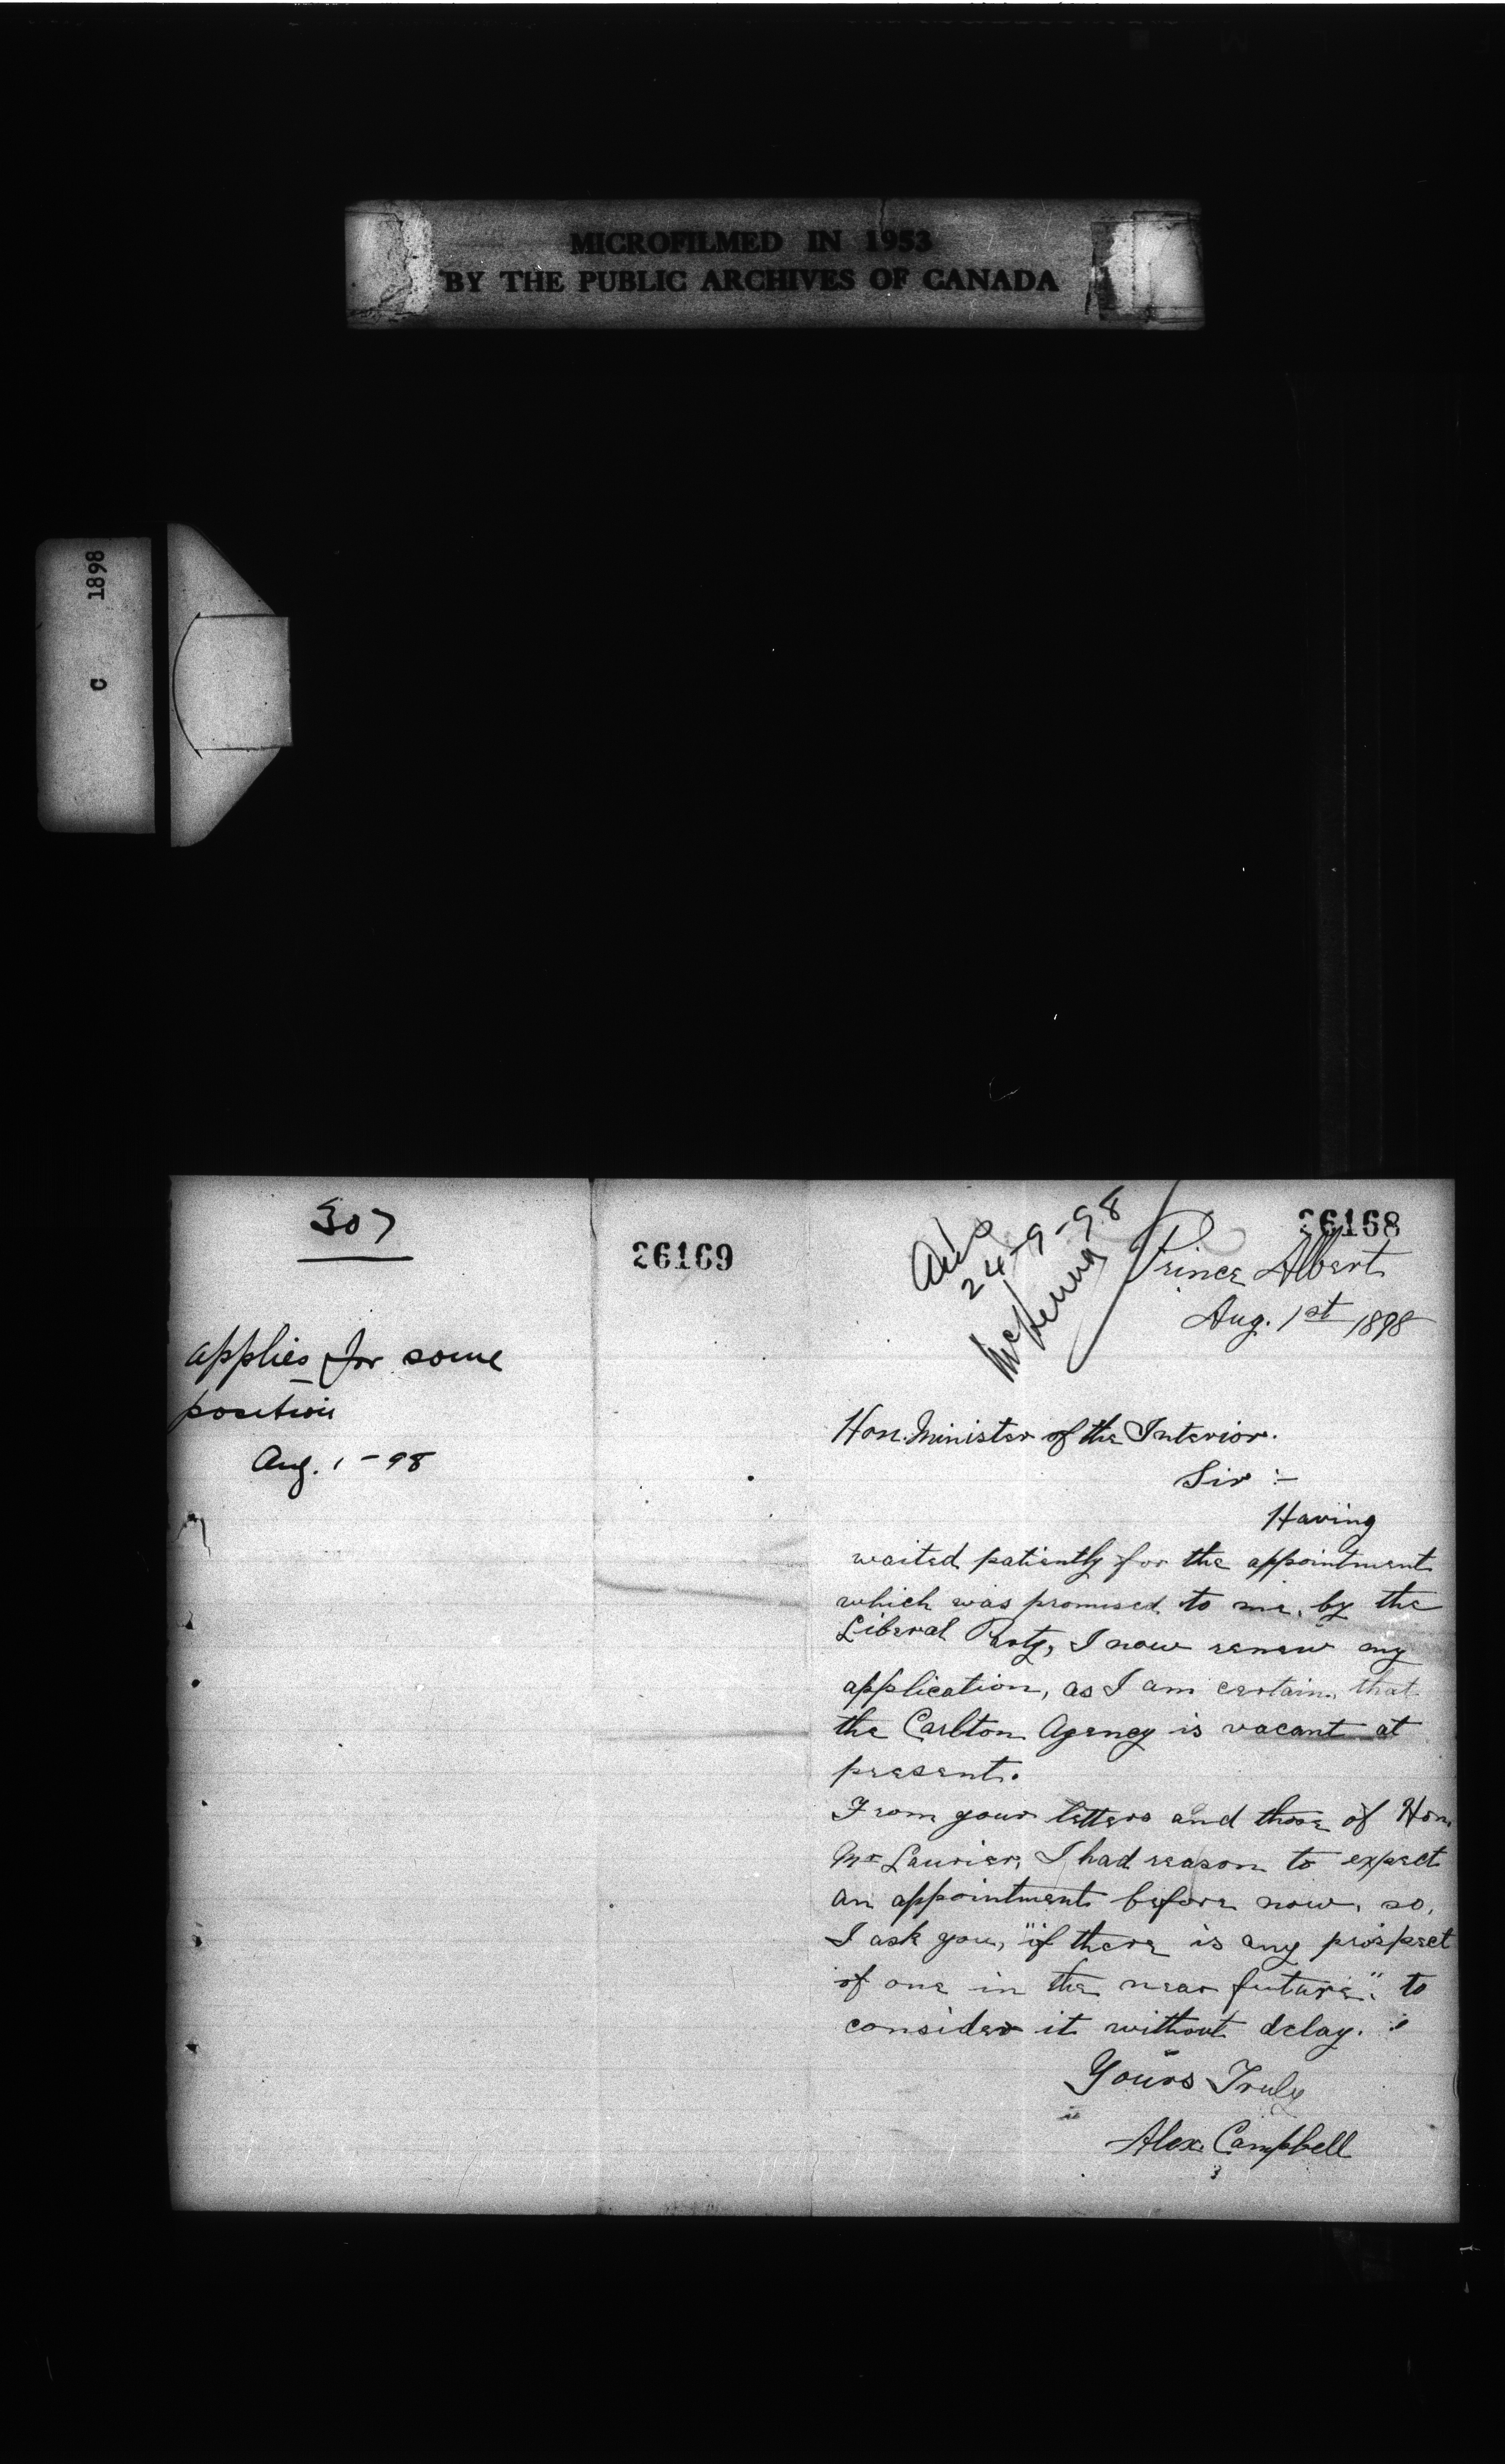 MICROFILMED IN 1953
BY THE PUBLIC ARCHIVES OF CANADA
C 1898
307
applies for some
position
Aug. 1-98
26169
26168
Ans
24-9-98
McKenna
Prince Albert
Aug. 1st 1898
Hon. Minister of the Interior.
Sir :-
Having
waited patiently for the appointment
which was promised to me, by the
Liberal Party, I now renew my
application, as I am certain, that
the Carlton Agency is vacant at
present.
From your letters and those of Hon.
Mr Laurier, I had reason to expect
an appointment before now, so,
I ask you, "if there is any prospect
of one in the near future", to
consider it without delay.
Yours Truly
Alex. Campbell